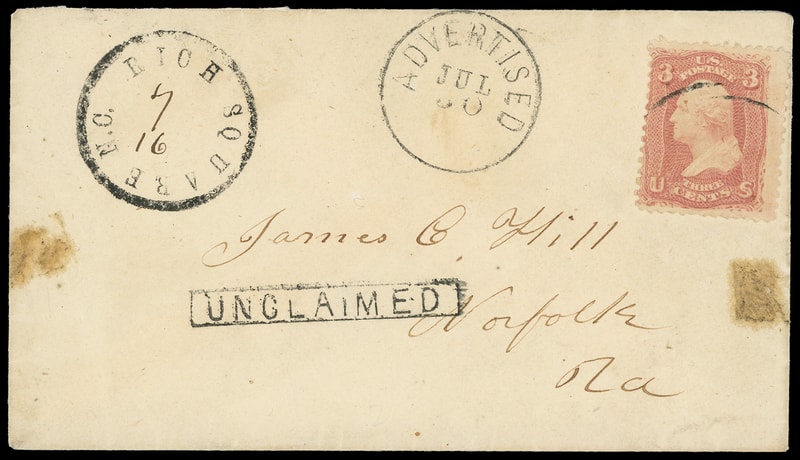 RICH SQUARE N.C.
7
16
ADVERTISED
JUL
30
3 U.S. 3
POSTAGE
THREE
U CENTS S
James C. Hill
UNCLAIMED
Norfolk
Va